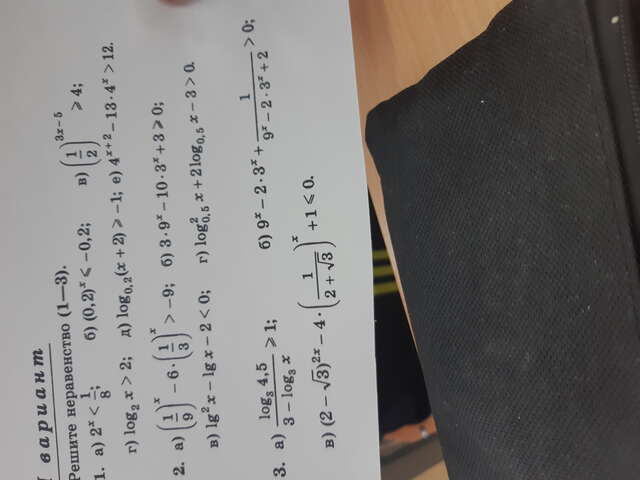 вариант
Решите неравенство (1—3).
1. а) 2^x < 1/8; б) (0,2)^x ⩽ −0,2; в) (1/2)^(3x−5) ⩾ 4;
г) log₂ x > 2; д) log₀,₂(x + 2) ⩾ −1; е) 4^(x+2) − 13·4^x > 12.
2. а) (1/9)^x − 6·(1/3)^x > −9; б) 3·9^x − 10·3^x + 3 ⩾ 0;
в) lg² x − lg x − 2 < 0; г) log²₀,₅ x + 2 log₀,₅ x − 3 > 0.
3. а) (log₃ 4,5)/(3 − log₃ x) ⩾ 1; б) 9^x − 2·3^x + 1/(9^x − 2·3^x + 2) > 0;
в) (2 − √3)^(2x) − 4·(1/(2 + √3))^x + 1 ⩽ 0.